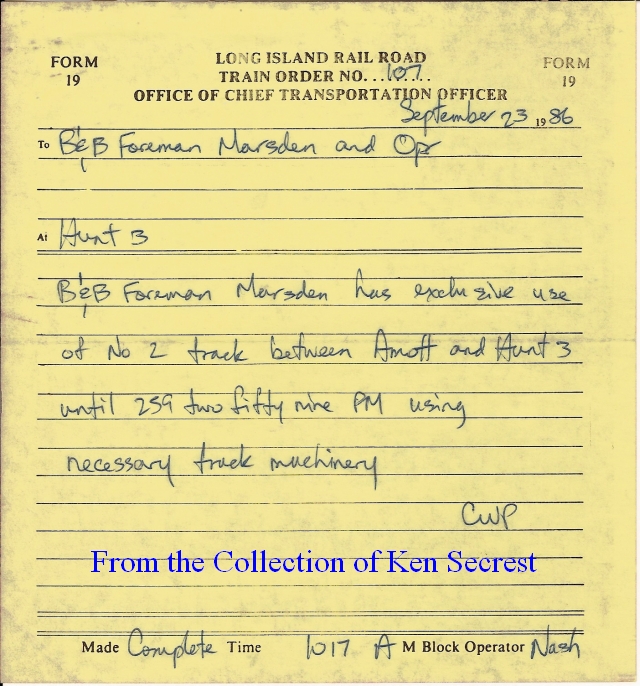 FORM 19
LONG ISLAND RAIL ROAD
TRAIN ORDER NO. . . 107. . . .
OFFICE OF CHIEF TRANSPORTATION OFFICER
FORM 19
September 23 1986
To B&B Foreman Marsden and Opr
At Hunt 3
B&B Foreman Marsden has exclusive use
of No 2 track between Amott and Hunt 3
until 259 two fifty nine PM using
necessary track machinery
CWP
From the Collection of Ken Secrest
Made Complete Time 1017 A M Block Operator Nash